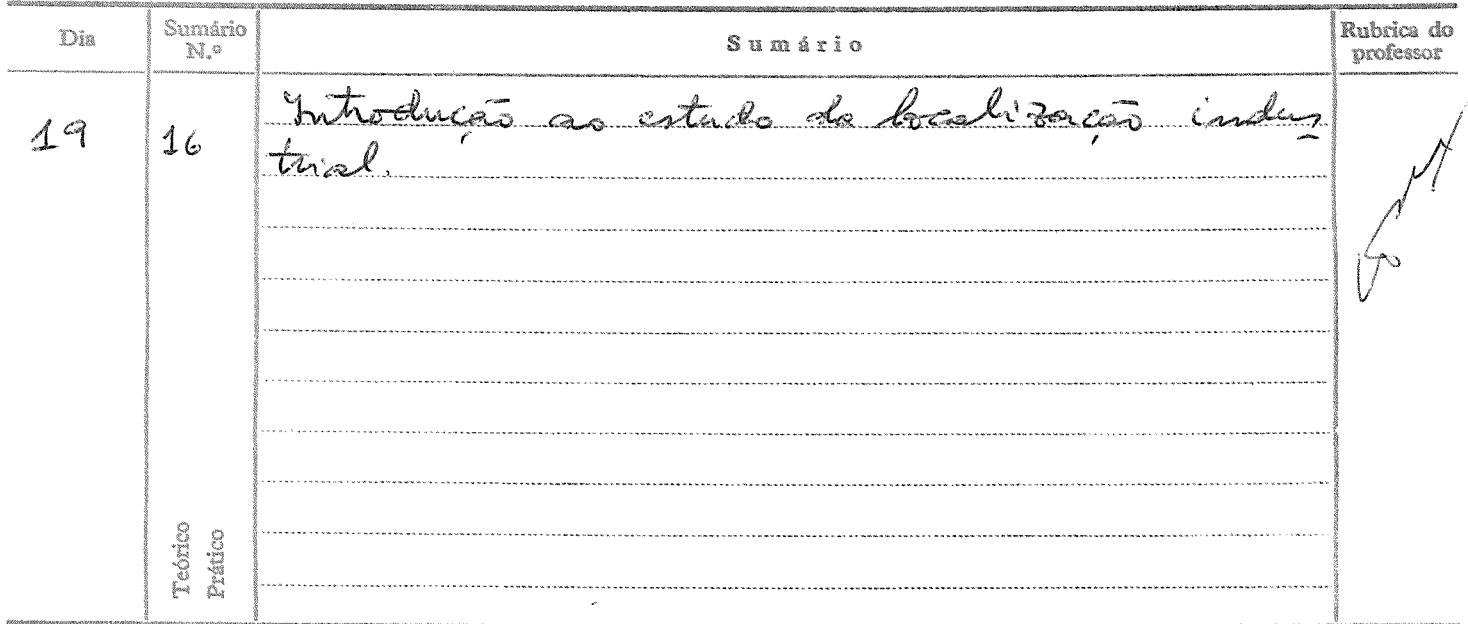 Dia
Sumário
N.º
Sumário
Rubrica do
professor
19
16
Introdução ao estudo da localização indus
trial.
Teórico
Prático